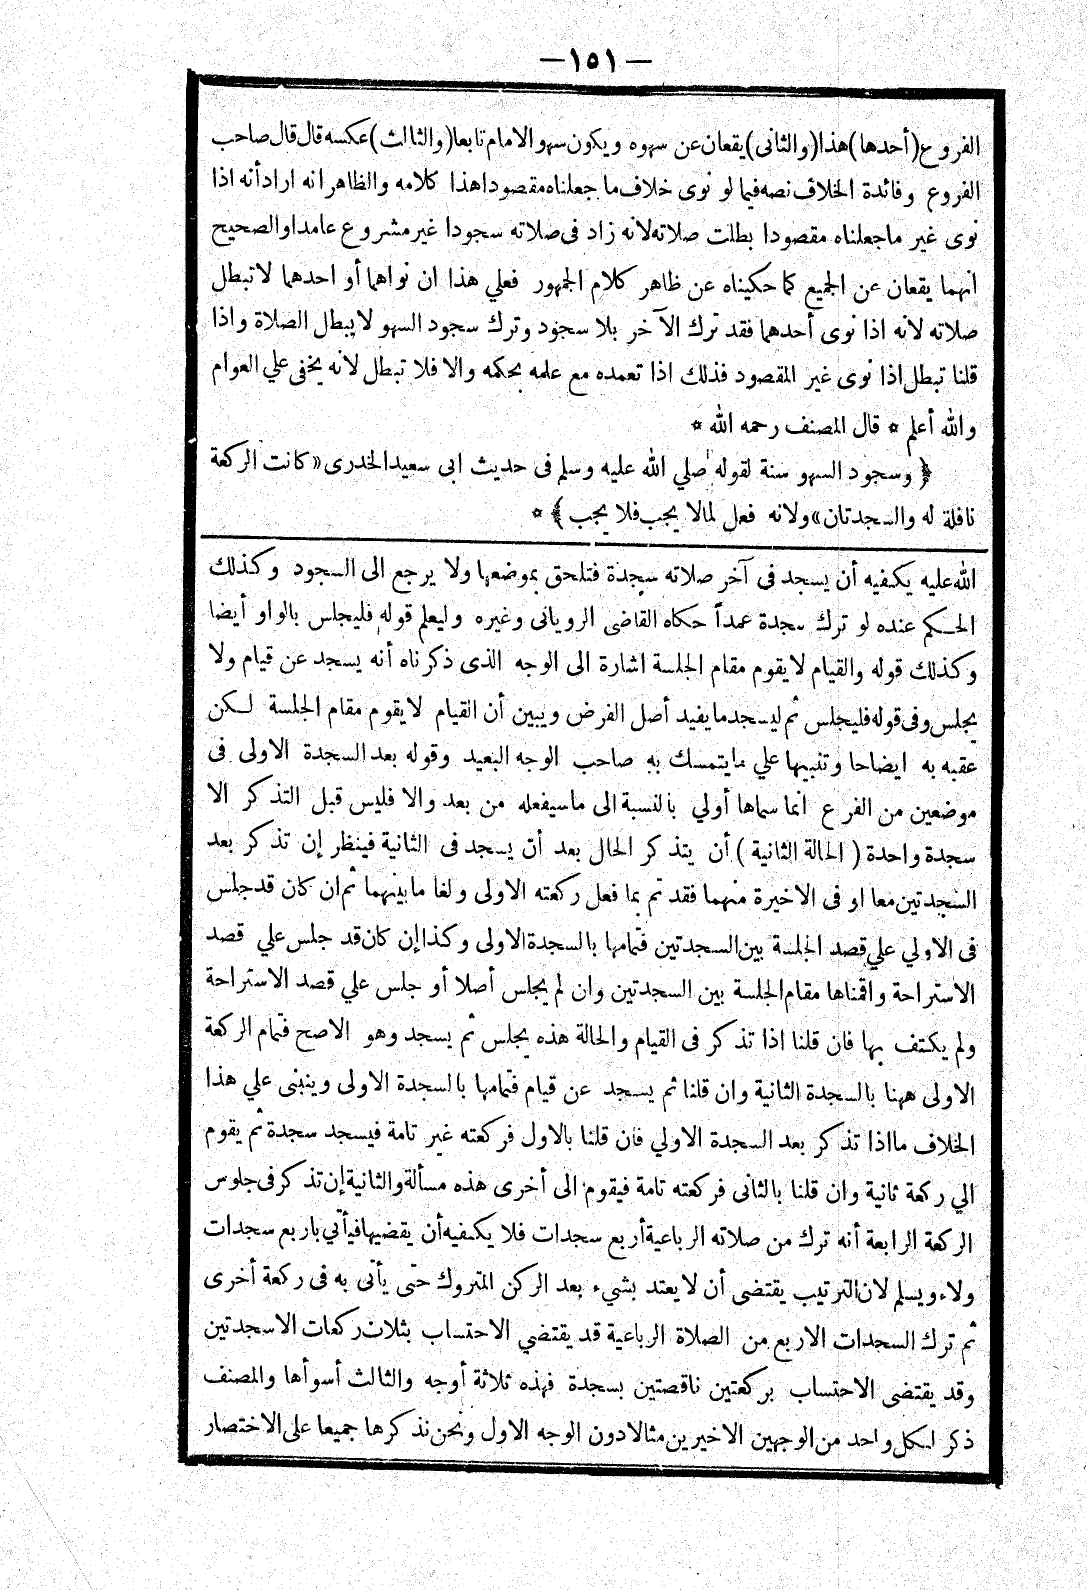 —١٥١—
الفروع(أحدها)هذا(والثانى)يقعان عن سهوه ويكون سهو الامام تابعا(والثالث)عكسه قال قال صاحب
الفروع وفائدة الخلاف نصه فيما لو نوى خلاف ما جعلناه مقصودا هذا كلامه والظاهر انه اراد أنه اذا
نوى غير ما جعلناه مقصودا بطلت صلاته لانه زاد فى صلاته سجودا غير مشروع عامدا والصحيح
انهما يقعان عن الجميع كما حكيناه عن ظاهر كلام الجمهور فعلي هذا ان نواهما أو احدهما لا تبطل
صلاته لانه اذا نوى أحدهما فقد ترك الآخر بلا سجود وترك سجود السهو لا يبطل الصلاة واذا
قلنا تبطل اذا نوى غير المقصود فذلك اذا تعمده مع علمه بحكمه والا فلا تبطل لانه يخفى علي العوام
والله أعلم * قال المصنف رحمه الله *
﴿ وسجود السهو سنة لقوله صلي الله عليه وسلم فى حديث ابى سعيد الخدرى «كانت الركعة
نافلة له والسجدتان» ولانه فعل لمالا يجب فلا يجب ﴾ *
الله عليه يكفيه أن يسجد فى آخر صلاته سجدة فتلحق بموضعها ولا يرجع الى السجود وكذلك
الحكم عنده لو ترك سجدة عمداً حكاه القاضى الرويانى وغيره وليعلم قوله فليجلس بالواو أيضا
وكذلك قوله والقيام لا يقوم مقام الجلسة اشارة الى الوجه الذى ذكرناه أنه يسجد عن قيام ولا
يجلس وفى قوله فليجلس ثم ليسجد ما يفيد أصل الفرض ويبين أن القيام لا يقوم مقام الجلسة لكن
عقبه به ايضاحا وتنبيها علي ما يتمسك به صاحب الوجه البعيد وقوله بعد السجدة الاولى فى
موضعين من الفرع انما سماها أولي بالنسبة الى ما سيفعله من بعد والا فليس قبل التذكر الا
سجدة واحدة ( الحالة الثانية ) أن يتذكر الحال بعد أن يسجد فى الثانية فينظر إن تذكر بعد
السجدتين معا او فى الاخيرة منهما فقد تم بما فعل ركعته الاولى ولغا ما بينهما ثم ان كان قد جلس
فى الاولي علي قصد الجلسة بين السجدتين فتمامها بالسجدة الاولى وكذا إن كان قد جلس علي قصد
الاستراحة واقمناها مقام الجلسة بين السجدتين وان لم يجلس أصلا أو جلس علي قصد الاستراحة
ولم يكتف بها فان قلنا اذا تذكر فى القيام والحالة هذه يجلس ثم يسجد وهو الاصح فتمام الركعة
الاولى ههنا بالسجدة الثانية وان قلنا ثم يسجد عن قيام فتمامها بالسجدة الاولى وينبنى علي هذا
الخلاف ما اذا تذكر بعد السجدة الاولي فان قلنا بالاول فركعته غير تامة فيسجد سجدة ثم يقوم
الي ركعة ثانية وان قلنا بالثانى فركعته تامة فيقوم الى أخرى هذه مسألة والثانية إن تذكر فى جلوس
الركعة الرابعة أنه ترك من صلاته الرباعية أربع سجدات فلا يكفيه أن يقضيها فيأتي باربع سجدات
ولاء ويسلم لان الترتيب يقتضى أن لا يعتد بشيء بعد الركن المتروك حتى يأتى به فى ركعة أخرى
ثم ترك السجدات الاربع من الصلاة الرباعية قد يقتضي الاحتساب بثلاث ركعات الا سجدتين
وقد يقتضى الاحتساب بركعتين ناقصتين بسجدة فهذه ثلاثة أوجه والثالث أسوأها والمصنف
ذكر لكل واحد من الوجهين الاخيرين مثالا دون الوجه الاول ونحن نذكرها جميعا على الاختصار